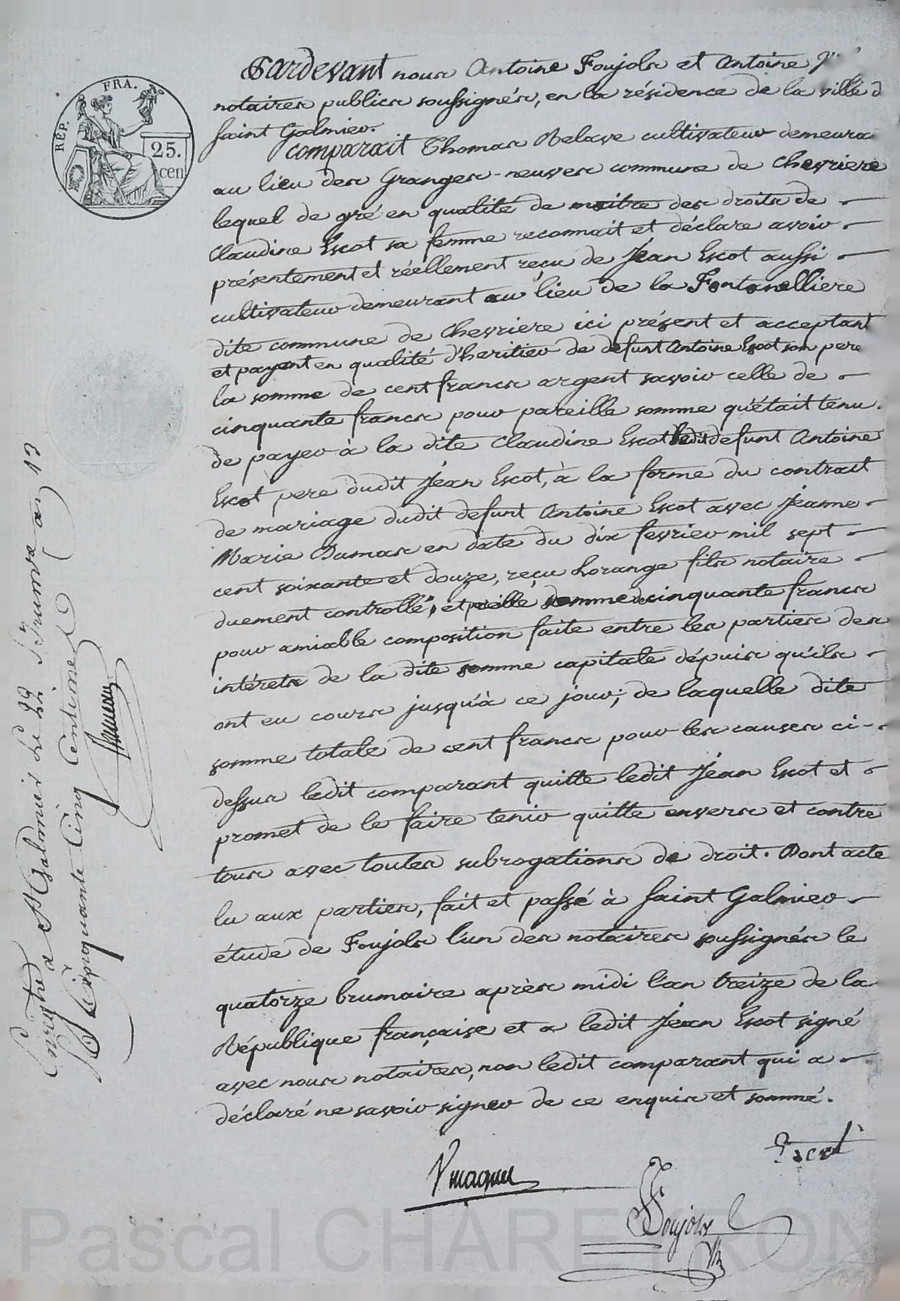 RÉP. FRA.
25.
cen
Pardevant nous Antoine Foujols et Antoine
notaires publics soussignés, en la résidence de la ville d
saint Galmier.
Comparait Thomas Relave cultivateur demeura
au lieu des Granges-neuves commune de Chevriere
lequel de gré en qualité de maitre des droits de
Claudine Escot sa femme reconnait et déclare avoir
présentement et réellement reçu de Jean Escot aussi
cultivateur demeurant au lieu de la Fontanelliere
dite commune de Chevriere ici présent et acceptant
et payant en qualité d'heritier de defunt Antoine Escot son pere
la somme de cent francs argent savoir celle de
cinquante francs pour pareille somme qu'était tenu
de payer à la dite Claudine Escot ledit defunt Antoine
Escot pere dudit Jean Escot, à la forme du contrait
de mariage dudit defunt Antoine Escot avec Jeanne
Marie Dumas en date du dix fevrier mil sept
cent soixante et douze, reçu Lorange fils notaire
duement controllé, et pareille somme de cinquante francs
pour amiable composition faite entre les parties des
intérets de la dite somme capitale depuis qu'ils
ont eu cours jusqu'à ce jour; de laquelle dite
somme totale de cent francs pour les causes ci-
dessus ledit comparant quitte ledit Jean Escot et
promet de le faire tenir quitte envers et contre
tous avec toutes subrogations de droit. Dont acte
lu aux parties, fait et passé à Saint Galmier
étude de Foujols l'un des notaires soussignés le
quatorze brumaire après midi l'an treize de la
République française et a ledit Jean Escot signé
avec nous notaires, non ledit comparant qui a
déclaré ne savoir signer de ce enquis et sommé.
Escot
Foujols
Enregitré à St Galmier le 22 Brumre an 13
Cinquante Cinq Centimes
Pascal CHAREYRON